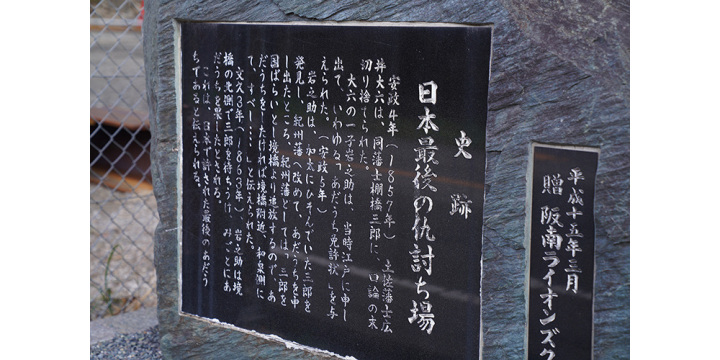 史跡
日本最後の仇討ち場
安政4年(1857年)土佐藩士広
井大六は、同藩士棚橋三郎に、口論の末
切り捨てられた。
大六の一子岩之助は、当時江戸に申し
出て、いわゆる「あだうち免許状」を与
えられた。(安政5年)
岩之助は、加太にひそんでいた三郎を
発見し、紀州藩へ改めて、あだうちを申
し出たところ、紀州藩としては、三郎を
国ばらいとし境橋より追放するので、あ
だうちをしたければ境橋附近、和泉側に
て、すべし、と伝えられた。
文久3年(1863年)、岩之助は境
橋の北側で三郎を待ちうけ、みごとにあ
だうちを果したとされる。
これは、日本で許された最後のあだう
ちであると伝えられる。
平成十五年三月
贈 阪南ライオンズク